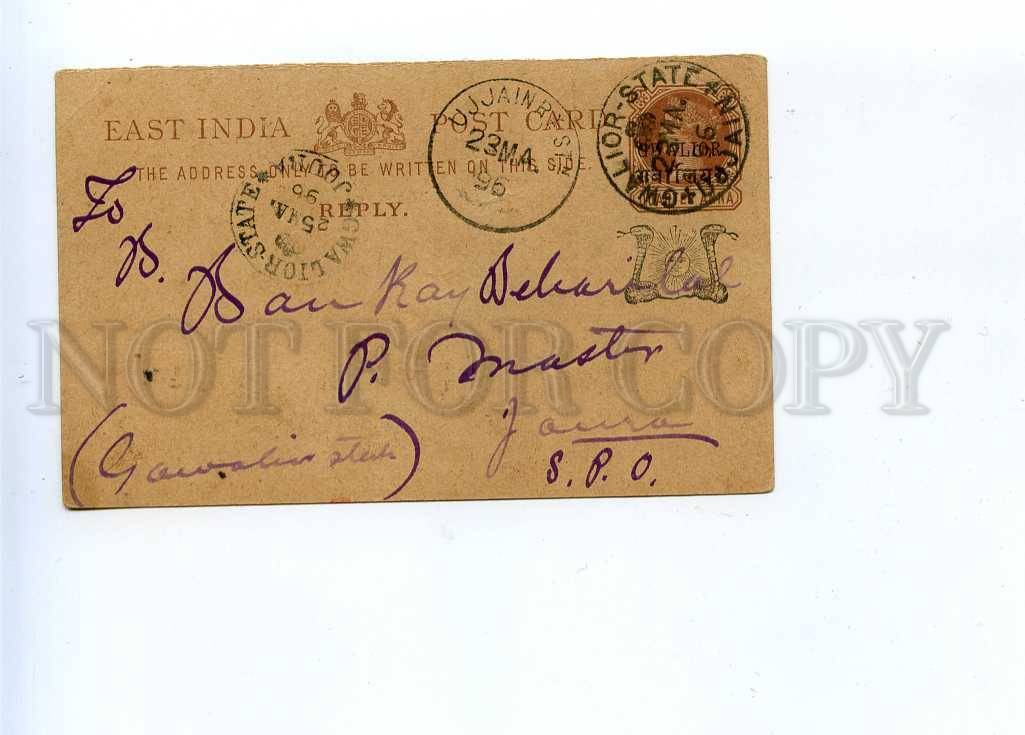 EAST INDIA POST CARD
THE ADDRESS ONLY TO BE WRITTEN ON THIS SIDE.
REPLY.
UJJAIN R. STN
23 MA.
96
GWALIOR-STATE
UJJAIN
MA.
96
GWALIOR
गवालियर
GWALIOR-STATE
25 MA.
96
To
B. Ban Kay Behari Lal
P. Master
Joura
(Gowalior state)
S. P. O.
NOT FOR COPY